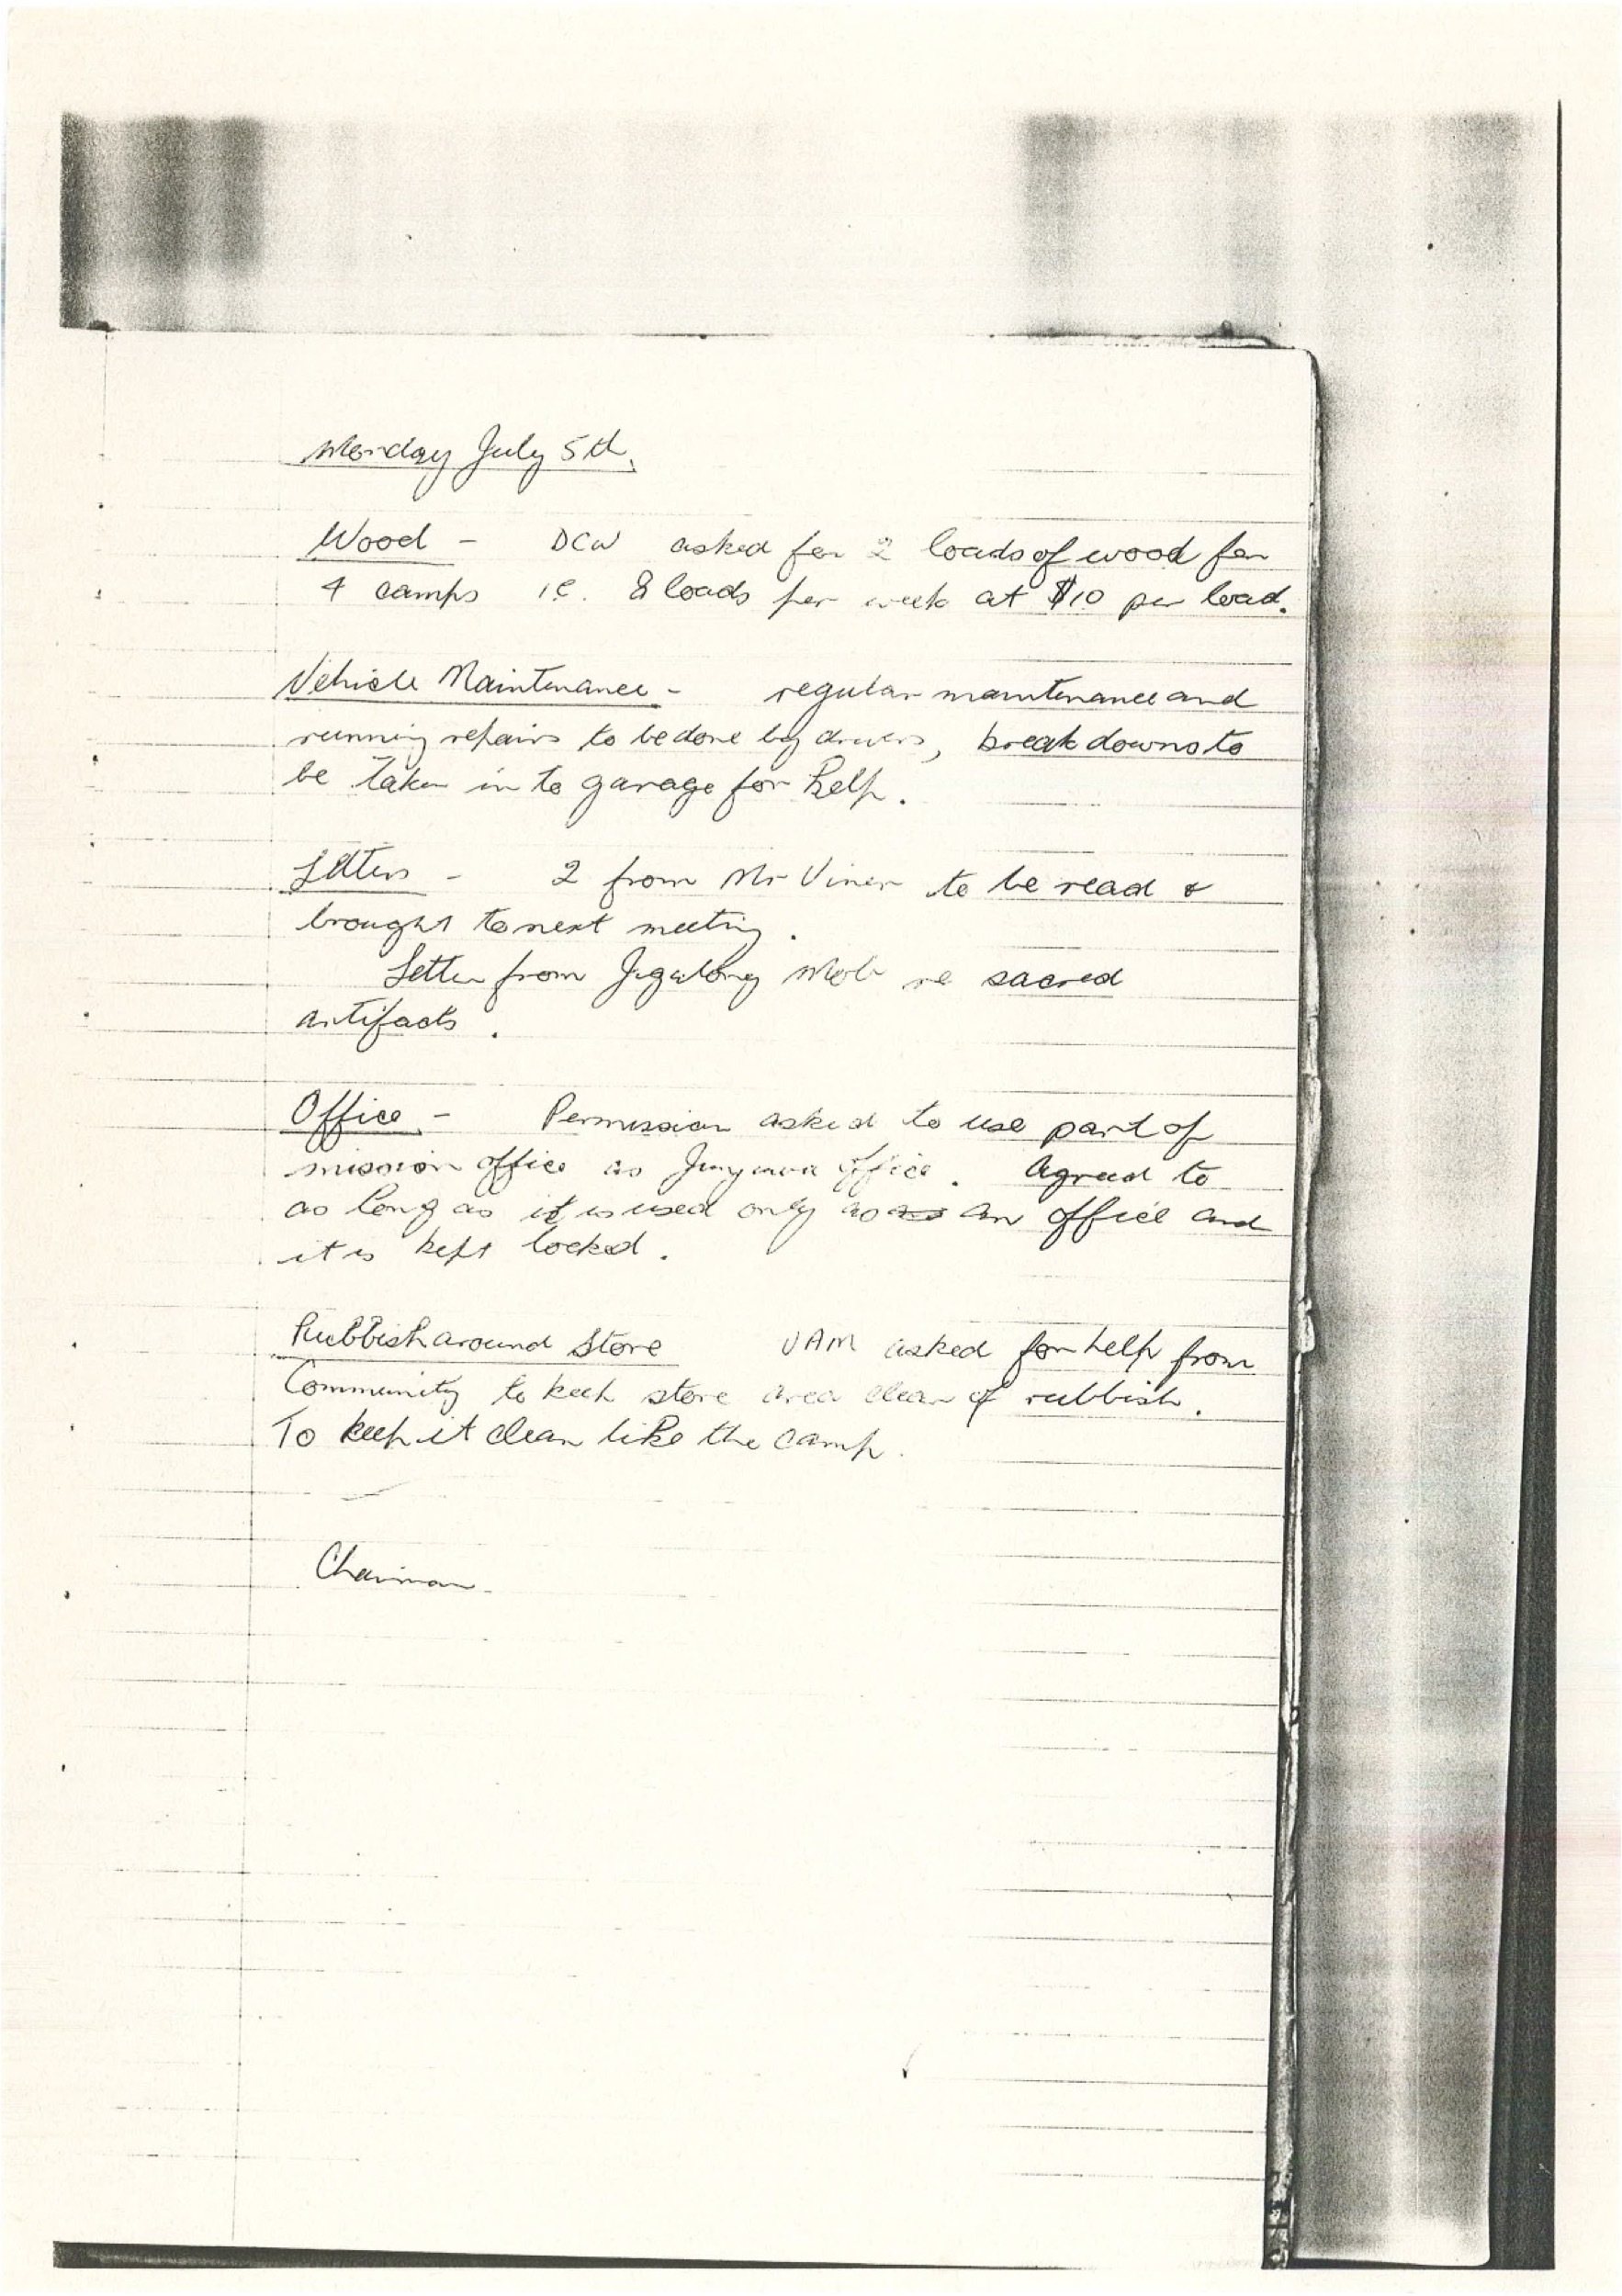 Monday July 5th.
Wood - DCW asked for 2 loads of wood for
4 camps i.e. 8 loads per week at $10 per load.
Vehicle Maintenance - regular maintenance and
running repairs to be done by drivers, break downs to
be taken in to garage for help.
Letters - 2 from Mr Viner to be read &
brought to next meeting.
Letter from Jigalong Mob re sacred
artifacts.
Office - Permission asked to use part of
mission office as office. Agreed to
as long as it is used only as an office and
it is kept locked.
Rubbish around Store UAM asked for help from
Community to keep store area clear of rubbish.
To keep it clean like the camp.
Chairman